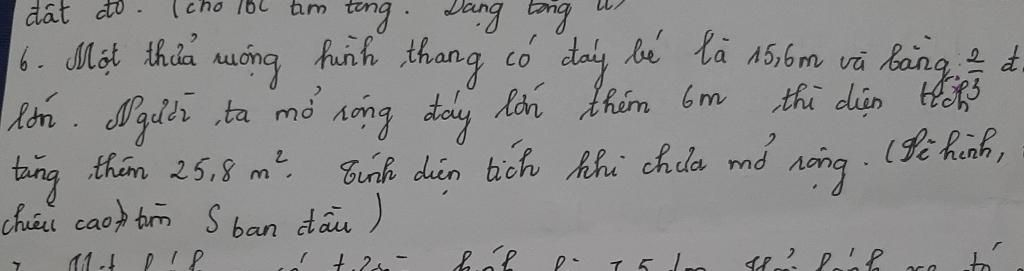 đất đó. (cho tìm tổng. Dạng tổng
6. Một thửa ruộng hình thang có đáy bé là 15,6m và bằng 2/3 đ
lớn. Người ta mở rộng đáy lớn thêm 6m thì diện tích
tăng thêm 25,8 m². Tính diện tích khi chưa mở rộng. (Vẽ hình,
chiều cao → tìm S ban đầu)